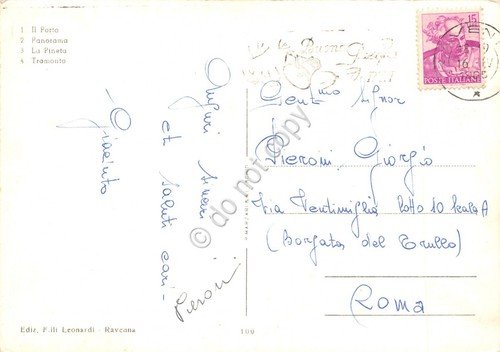 1 Il Porto
2 Panorama
3 La Pineta
4 Tramonto
15
POSTE ITALIANE
Auguri sinceri
et saluti cari-
-Giacinto
Pieroni
Gent.mo Signor
Pieroni Giorgio
Via Ventimiglia lotto 10 scala A
(Borgata del Trullo)
Roma
Ediz. F.lli Leonardi - Ravenna
100
© do not copy